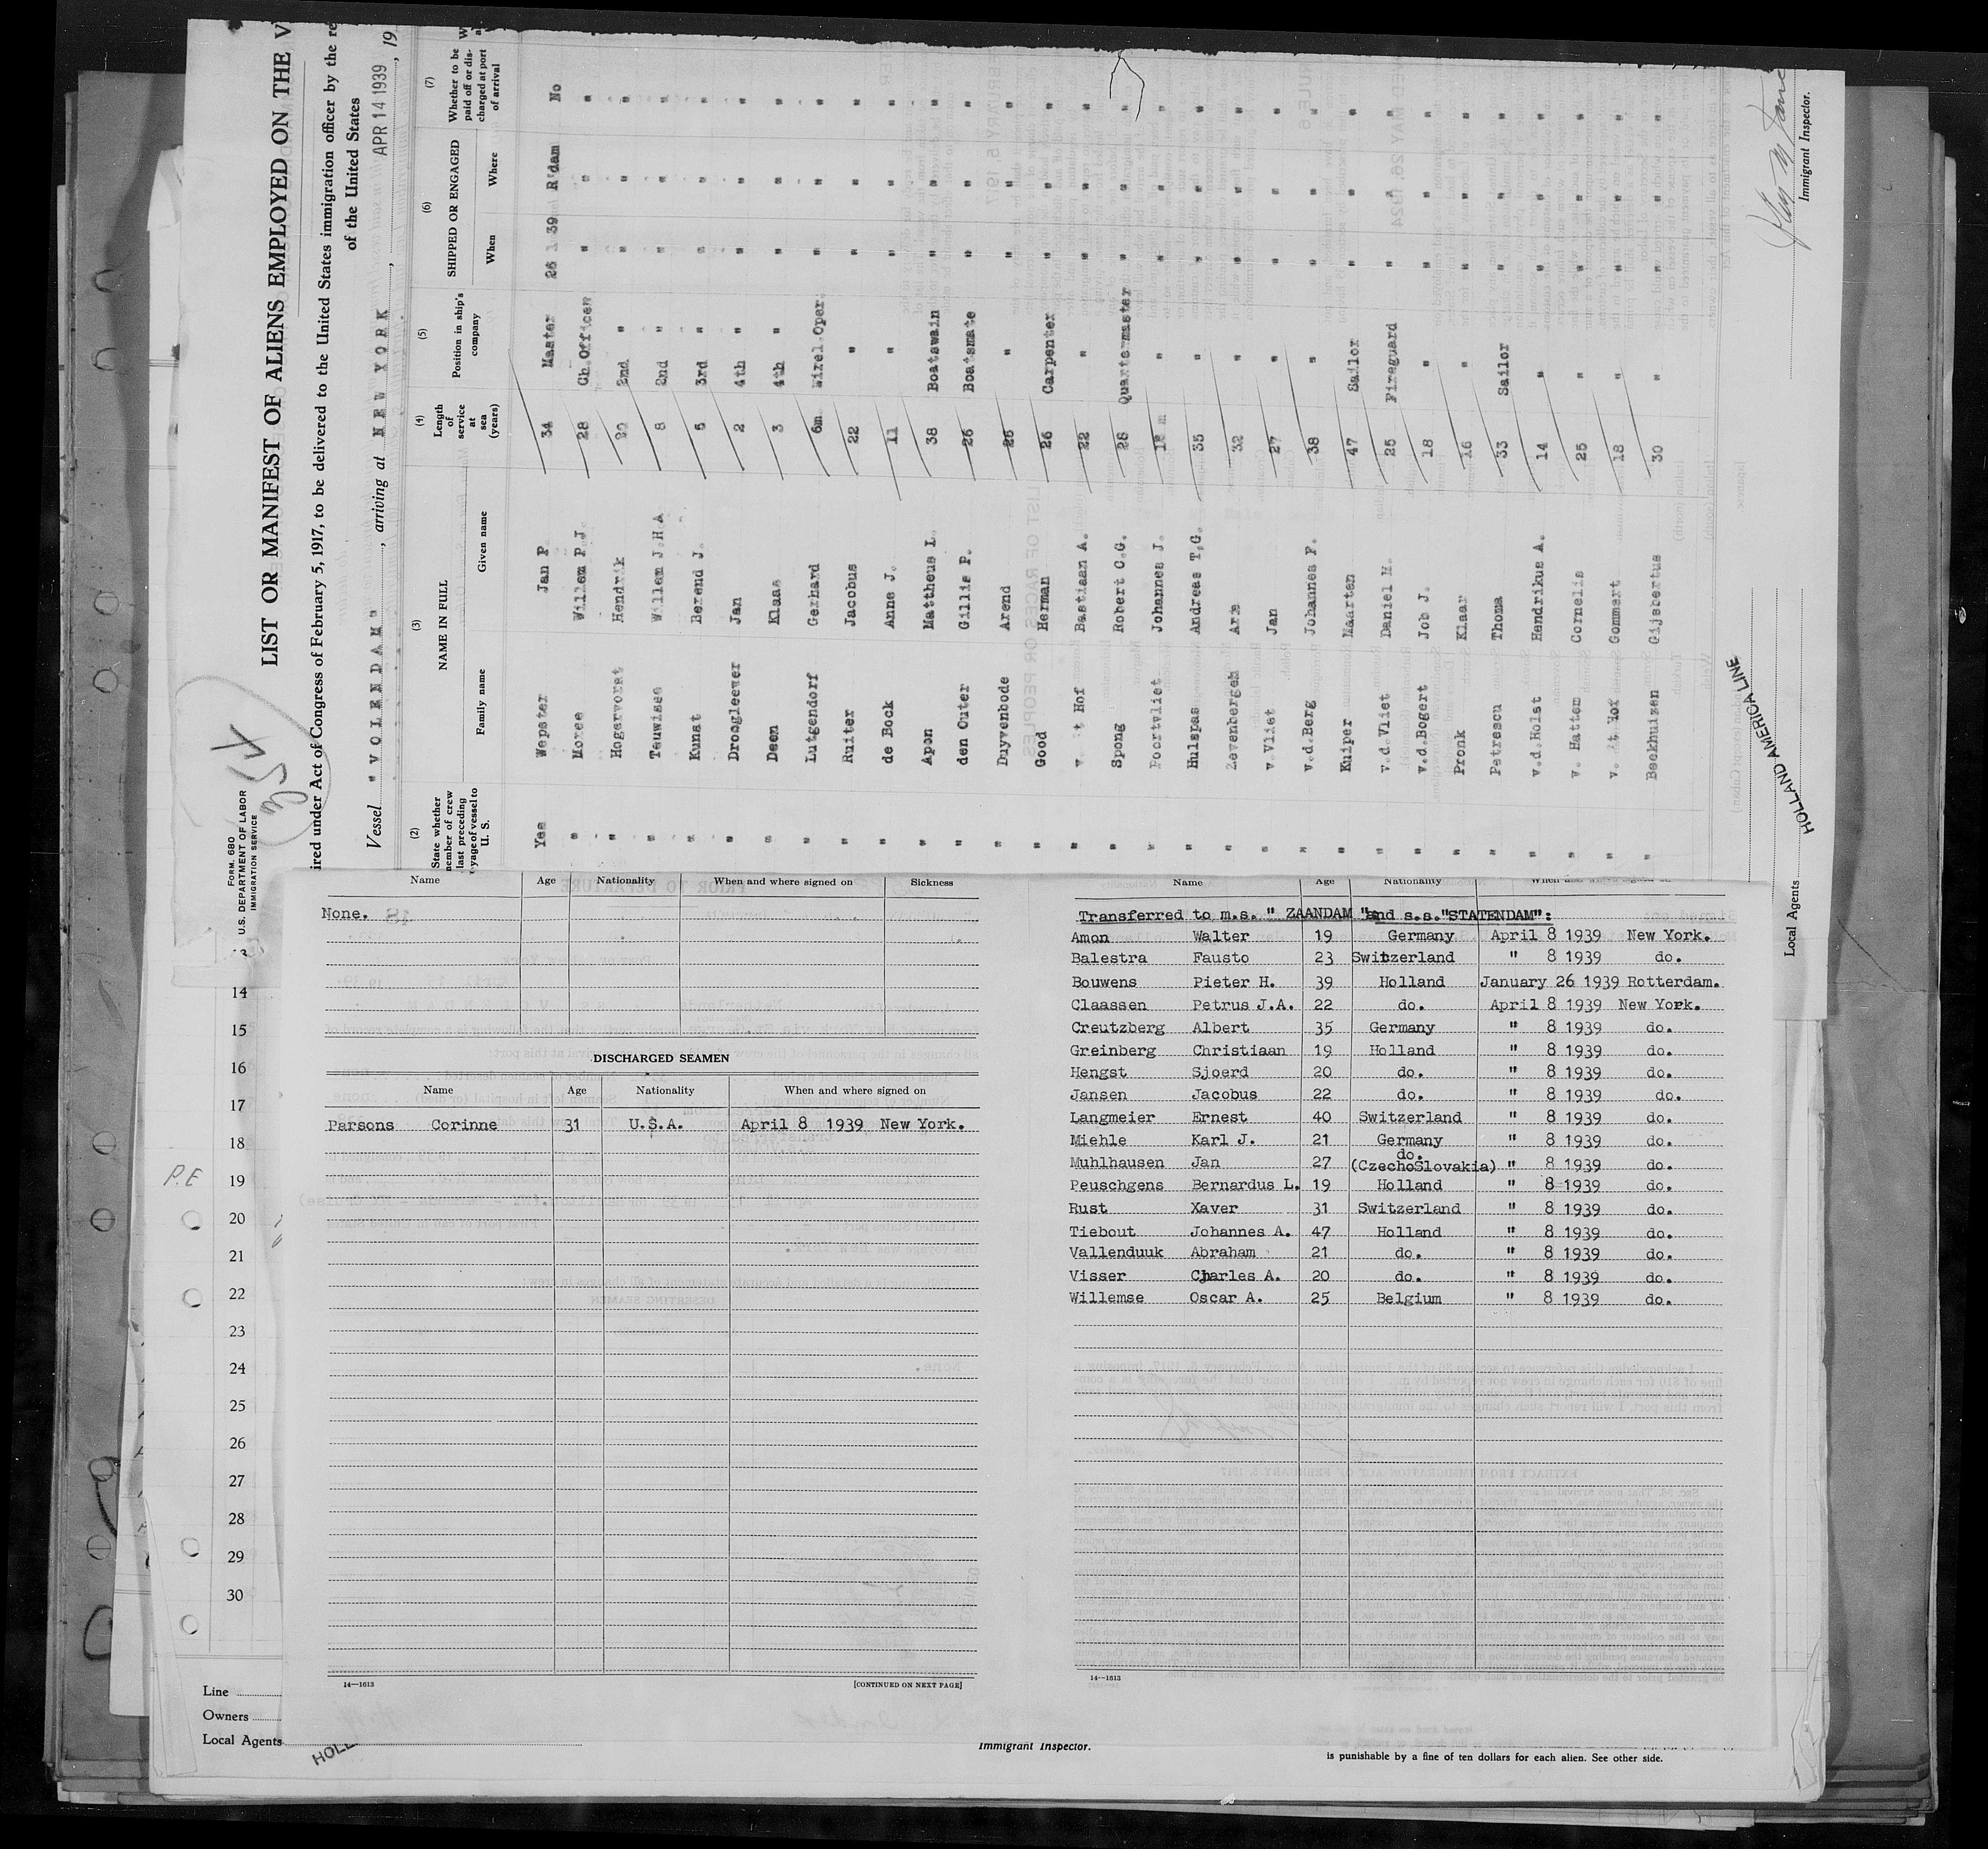 FORM. 680
U.S. DEPARTMENT OF LABOR
IMMIGRATION SERVICE
LIST OR MANIFEST OF ALIENS EMPLOYED ON THE V
ired under Act of Congress of February 5, 1917, to be delivered to the United States immigration officer by the re
of the United States
Vessel "VOLENDAM", arriving at NEW YORK, APR 14 1939, 19
(2) State whether member of crew last preceding voyage of vessel to U. S.
(3) NAME IN FULL
Family name Given name
(4) Length of service at sea (years)
(5) Position in ship's company
(6) SHIPPED OR ENGAGED
When Where
(7) Whether to be paid off or discharged at port of arrival
Yes Wepster Jan P. 34 Master 26 1 39 R'dam No
" Moree Willem P.J. 28 Ch.Officer " " "
" Hogervorst Hendrik 20 2nd " " " "
" Teuwisse Willem J.H.A 8 2nd " " " "
" Kunst Berend J. 5 3rd " " " "
" Droogleever Jan 2 4th " " " "
" Deen Klaas 3 4th " " " "
" Lutgendorf Gerhard 6m Wirel.Oper. " " "
" Ruiter Jacobus 22 " " " "
" de Bock Anne J. 11 " " " "
" Apon Mattheus L. 38 Boatswain " " "
" den Outer Gillis P. 26 Boatsmate " " "
" Duyvenbode Arend 25 " " " "
" Good Herman 26 Carpenter " " "
" v. 't Hof Bastiaan A. 22 " " " "
" Spong Robert C.G. 28 Quartermaster " " "
" Poortvliet Johannes J. " " " "
" Hulspas Andreas T.G. 35 " " " "
" Zevenbergen Arie 32 " " " "
" v.Vliet Jan 27 " " " "
" v.d.Berg Johannes P. 38 " " " "
" Kuiper Maarten 47 Sailor " " "
" v.d.Vliet Daniel M. 25 Fireguard " " "
" v.d.Bogert Job J. 18 " " " "
" Pronk Klaas 16 " " " "
" Petrescu Thoma 33 Sailor " " "
" v.d.Holst Hendrikus A. 14 " " " "
" v. Hattem Cornelis 25 " " " "
" v. 't Hof Gommert 18 " " " "
" Beekhuizen Gijsbertus 30 " " " "
Immigrant Inspector.
HOLLAND AMERICA LINE
Local Agents
14
15
16
17
18
P.E 19
20
21
22
23
24
25
26
27
28
29
30
Line
Owners
Local Agents
Name Age Nationality When and where signed on Sickness
None.
DISCHARGED SEAMEN
Name Age Nationality When and where signed on
Parsons Corinne 31 U.S.A. April 8 1939 New York.
14—1613 [CONTINUED ON NEXT PAGE]
Name Age Nationality
Transferred to m.s. " ZAANDAM " and s.s."STATENDAM":
Amon Walter 19 Germany April 8 1939 New York.
Balestra Fausto 23 Switzerland " 8 1939 do.
Bouwens Pieter H. 39 Holland January 26 1939 Rotterdam.
Claassen Petrus J.A. 22 do. April 8 1939 New York.
Creutzberg Albert 35 Germany " 8 1939 do.
Greinberg Christiaan 19 Holland " 8 1939 do.
Hengst Sjoerd 20 do. " 8 1939 do.
Jansen Jacobus 22 do. " 8 1939 do.
Langmeier Ernest 40 Switzerland " 8 1939 do.
Miehle Karl J. 21 Germany " 8 1939 do.
Muhlhausen Jan 27 do. (CzechoSlovakia) " 8 1939 do.
Peuschgens Bernardus L. 19 Holland " 8 1939 do.
Rust Xaver 31 Switzerland " 8 1939 do.
Tiebout Johannes A. 47 Holland " 8 1939 do.
Vallenduuk Abraham 21 do. " 8 1939 do.
Visser Charles A. 20 do. " 8 1939 do.
Willemse Oscar A. 25 Belgium " 8 1939 do.
14—1613
Immigrant Inspector.
is punishable by a fine of ten dollars for each alien. See other side.